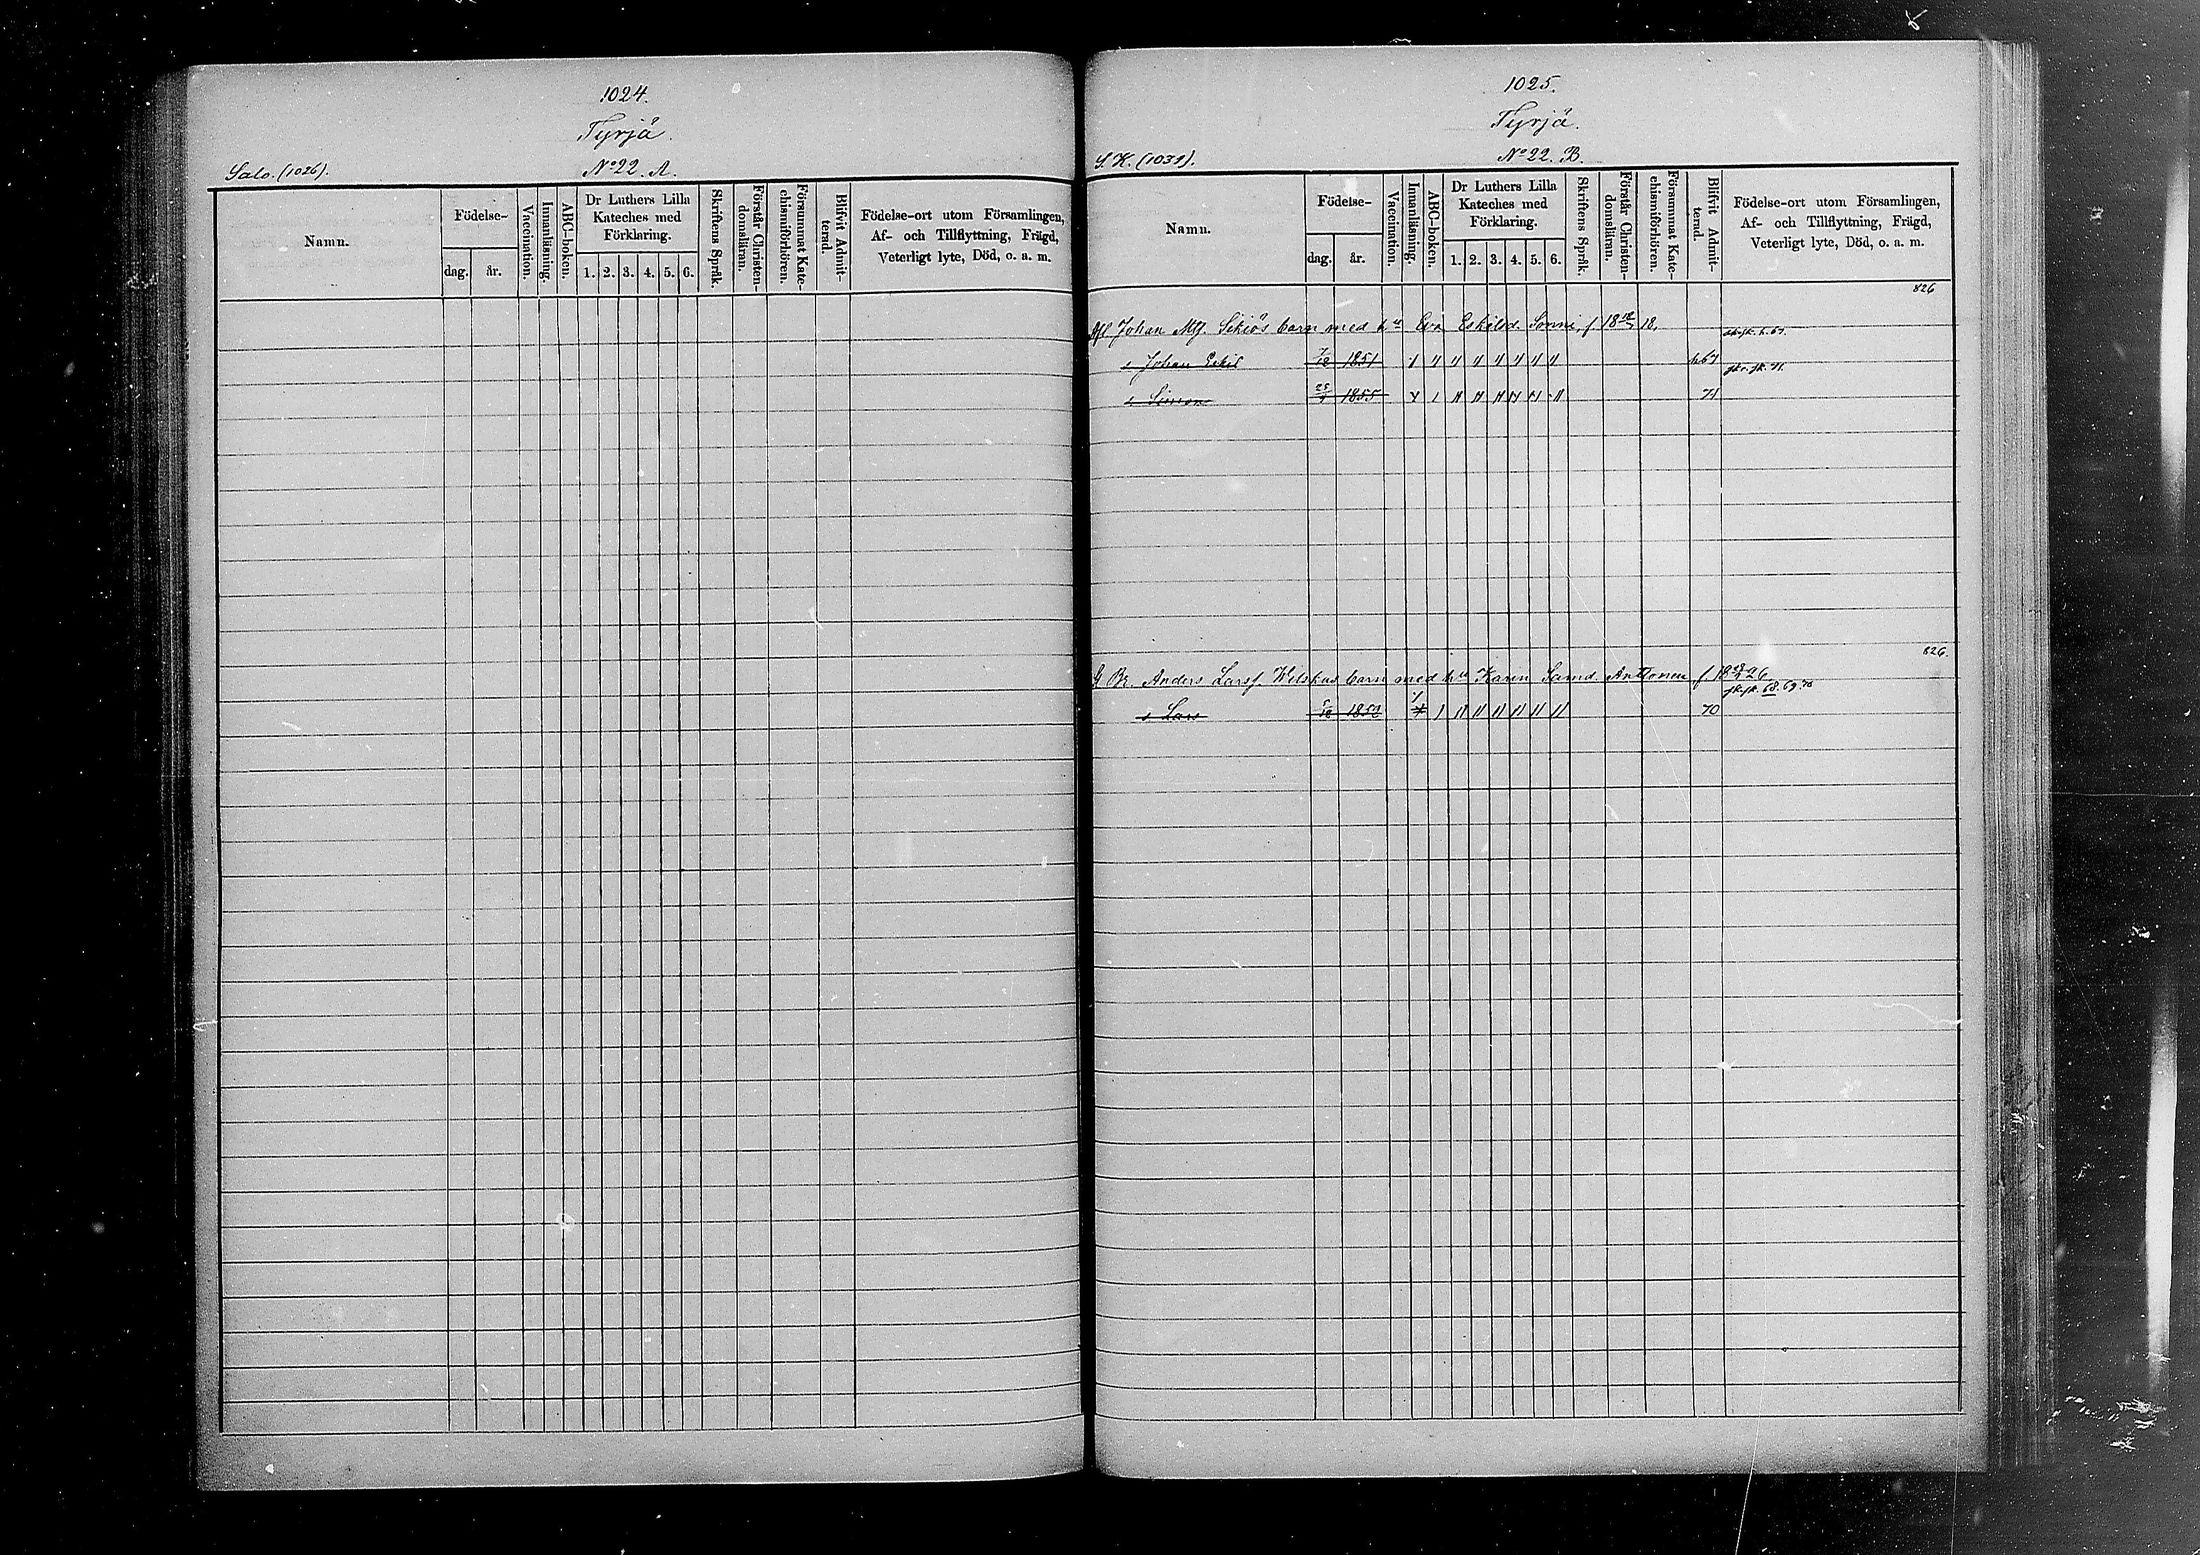 1024.
Tyrjä.
Salo. (1026). No 22. A.
Namn.
Födelse-
dag. år.
Vaccination.
Innanläsning.
ABC-boken.
Dr Luthers Lilla
Kateches med
Förklaring.
1. 2. 3. 4. 5. 6.
Skriftens Språk.
Förstår Christen-
domsläran.
Försummat Kate-
chismiförhören.
Blifvit Admit-
terad.
Födelse-ort utom Församlingen,
Af- och Tillflyttning, Frägd,
Veterligt lyte, Död, o. a. m.
1025.
Tyrjä.
S. K. (1031). No 22. B.
Namn.
Födelse-
dag. år.
Vaccination.
Innanläsning.
ABC-boken.
Dr Luthers Lilla
Kateches med
Förklaring.
1. 2. 3. 4. 5. 6.
Skriftens Språk.
Förstår Christen-
domsläran.
Försummat Kate-
chismiförhören.
Blifvit Admit-
terad.
Födelse-ort utom Församlingen,
Af- och Tillflyttning, Frägd,
Veterligt lyte, Död, o. a. m.
826
Johan barn med Eva Eskilsd. Sonni, f 18 18.
s Johan Eskil 1851 67
s Simon 25 1855 71
826.
Anders Larsf. barn med Karin Samd. Anttonen f 18 26
68. 69. 70
s Lars 1852 70